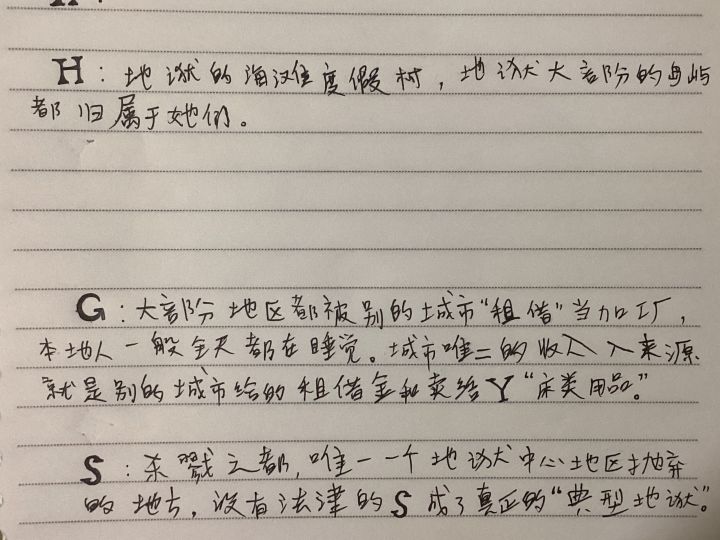 H：地狱的海滨度假村，地狱大部分的岛屿
都归属于她们。
G：大部分地区都被别的城市“租借”当加工厂，
本地人一般全天都在睡觉。城市唯二的收入来源
就是别的城市给的租借金和卖给Y“床类用品。”
S：杀戮之都，唯一一个地狱中心地区抛弃
的地方，没有法律的S成了真正的“典型地狱”。